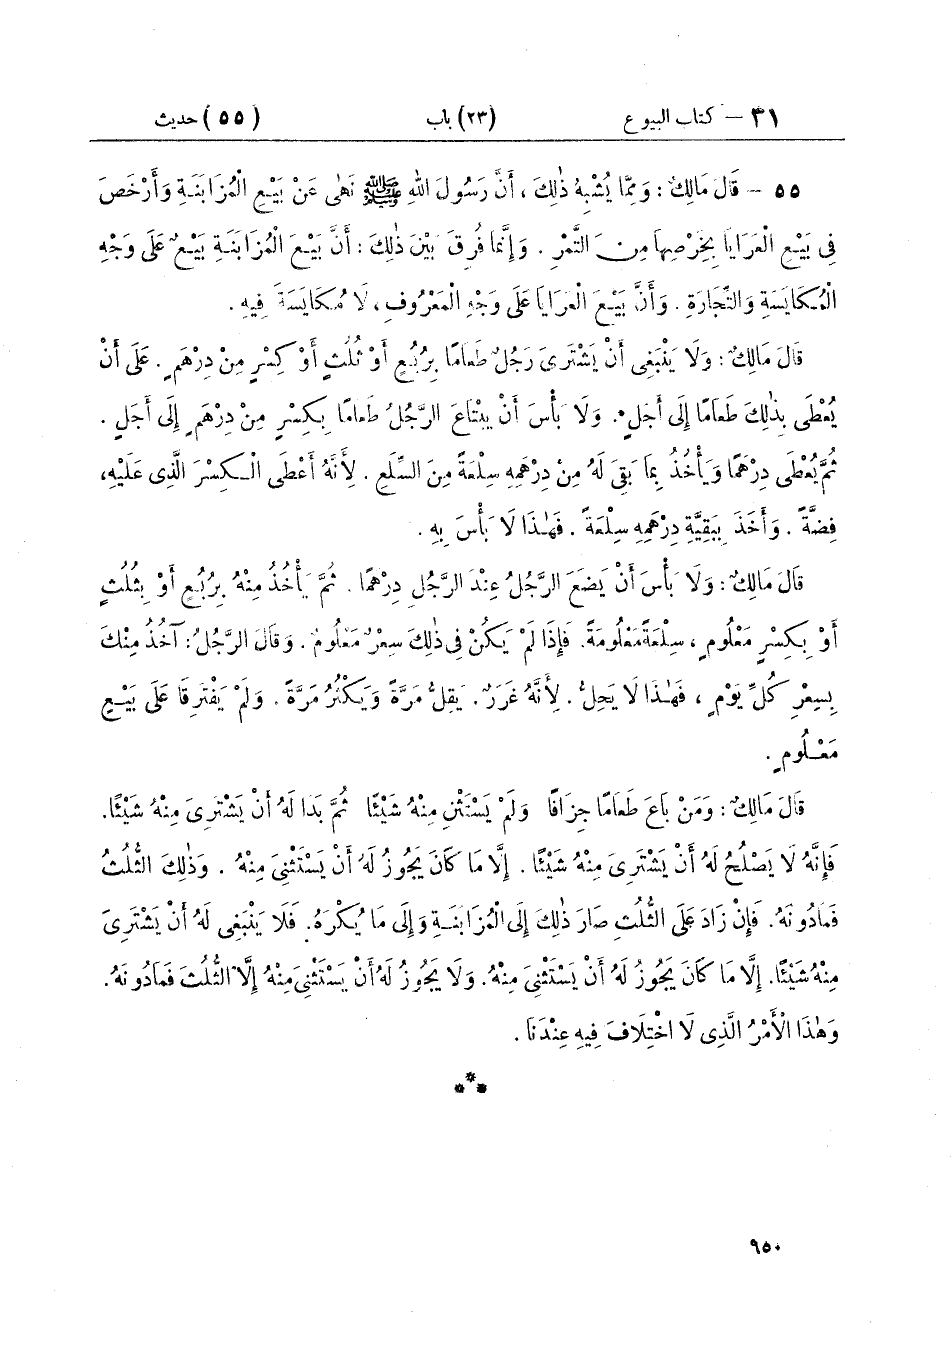 ٣١ - كتاب البيوع (٢٣) باب (٥٥) حديث
٥٥ - قَالَ مَالِكٌ : وَمِمَّا يُشْبِهُ ذٰلِكَ ، أَنَّ رَسُولَ اللهِ ﷺ نَهٰى عَنْ بَيْعِ الْمُزَابَنَةِ وَأَرْخَصَ
فِي بَيْعِ الْعَرَايَا بِخَرْصِهَا مِنَ التَّمْرِ . وَإِنَّمَا فُرِقَ بَيْنَ ذٰلِكَ : أَنَّ بَيْعَ الْمُزَابَنَةِ بَيْعٌ عَلَى وَجْهِ
الْمُكَايَسَةِ وَالتِّجَارَةِ . وَأَنَّ بَيْعَ الْعَرَايَا عَلَى وَجْهِ الْمَعْرُوفِ ، لَا مُكَايَسَةَ فِيهِ .
قَالَ مَالِكٌ : وَلَا يَنْبَغِى أَنْ يَشْتَرِىَ رَجُلٌ طَعَامًا بِرُبُعٍ أَوْ ثُلُثٍ أَوْ كِسْرٍ مِنْ دِرْهَمٍ . عَلَى أَنْ
يُعْطَى بِذٰلِكَ طَعَامًا إِلَى أَجَلٍ . وَلَا بَأْسَ أَنْ يَبْتَاعَ الرَّجُلُ طَعَامًا بِكِسْرٍ مِنْ دِرْهَمٍ إِلَى أَجَلٍ .
ثُمَّ يُعْطَى دِرْهَمًا وَيَأْخُذُ بِمَا بَقِىَ لَهُ مِنْ دِرْهَمِهِ سِلْعَةً مِنَ السِّلَعِ . لِأَنَّهُ أَعْطَى الْكِسْرَ الَّذِى عَلَيْهِ،
فِضَّةً . وَأَخَذَ بِبَقِيَّةِ دِرْهَمِهِ سِلْعَةً . فَهٰذَا لَا بَأْسَ بِهِ .
قَالَ مَالِكٌ : وَلَا بَأْسَ أَنْ يَضَعَ الرَّجُلُ عِنْدَ الرَّجُلِ دِرْهَمًا . ثُمَّ يَأْخُذُ مِنْهُ بِرُبُعٍ أَوْ بِثُلُثٍ
أَوْ بِكِسْرٍ مَعْلُومٍ ، سِلْعَةً مَعْلُومَةً. فَإِذَا لَمْ يَكُنْ فِى ذٰلِكَ سِعْرٌ مَعْلُومٌ . وَقَالَ الرَّجُلُ: آخُذُ مِنْكَ
بِسِعْرِ كُلِّ يَوْمٍ ، فَهٰذَا لَا يَحِلُّ . لِأَنَّهُ غَرَرٌ . يَقِلُّ مَرَّةً وَيَكْثُرُ مَرَّةً . وَلَمْ يَفْتَرِقَا عَلَى بَيْعٍ
مَعْلُومٍ .
قَالَ مَالِكٌ : وَمَنْ بَاعَ طَعَامًا جِزَافًا وَلَمْ يَسْتَثْنِ مِنْهُ شَيْئًا ثُمَّ بَدَا لَهُ أَنْ يَشْتَرِىَ مِنْهُ شَيْئًا.
فَإِنَّهُ لَا يَصْلُحُ لَهُ أَنْ يَشْتَرِىَ مِنْهُ شَيْئًا . إِلَّا مَا كَانَ يَجُوزُ لَهُ أَنْ يَسْتَثْنِىَ مِنْهُ . وَذٰلِكَ الثُّلُثُ
فَمَا دُونَهُ. فَإِنْ زَادَ عَلَى الثُّلُثِ صَارَ ذٰلِكَ إِلَى الْمُزَابَنَةِ وَإِلَى مَا يُكْرَهُ. فَلَا يَنْبَغِى لَهُ أَنْ يَشْتَرِىَ
مِنْهُ شَيْئًا. إِلَّا مَا كَانَ يَجُوزُ لَهُ أَنْ يَسْتَثْنِىَ مِنْهُ. وَلَا يَجُوزُ لَهُ أَنْ يَسْتَثْنِىَ مِنْهُ إِلَّا الثُّلُثَ فَمَا دُونَهُ .
وَهٰذَا الْأَمْرُ الَّذِى لَا اخْتِلَافَ فِيهِ عِنْدَنَا .
***
٩٥٠